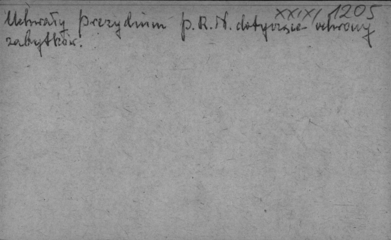 XXIX/1205
Uchwały prezydium p.R.N. dotyczące ochrony
zabytków.